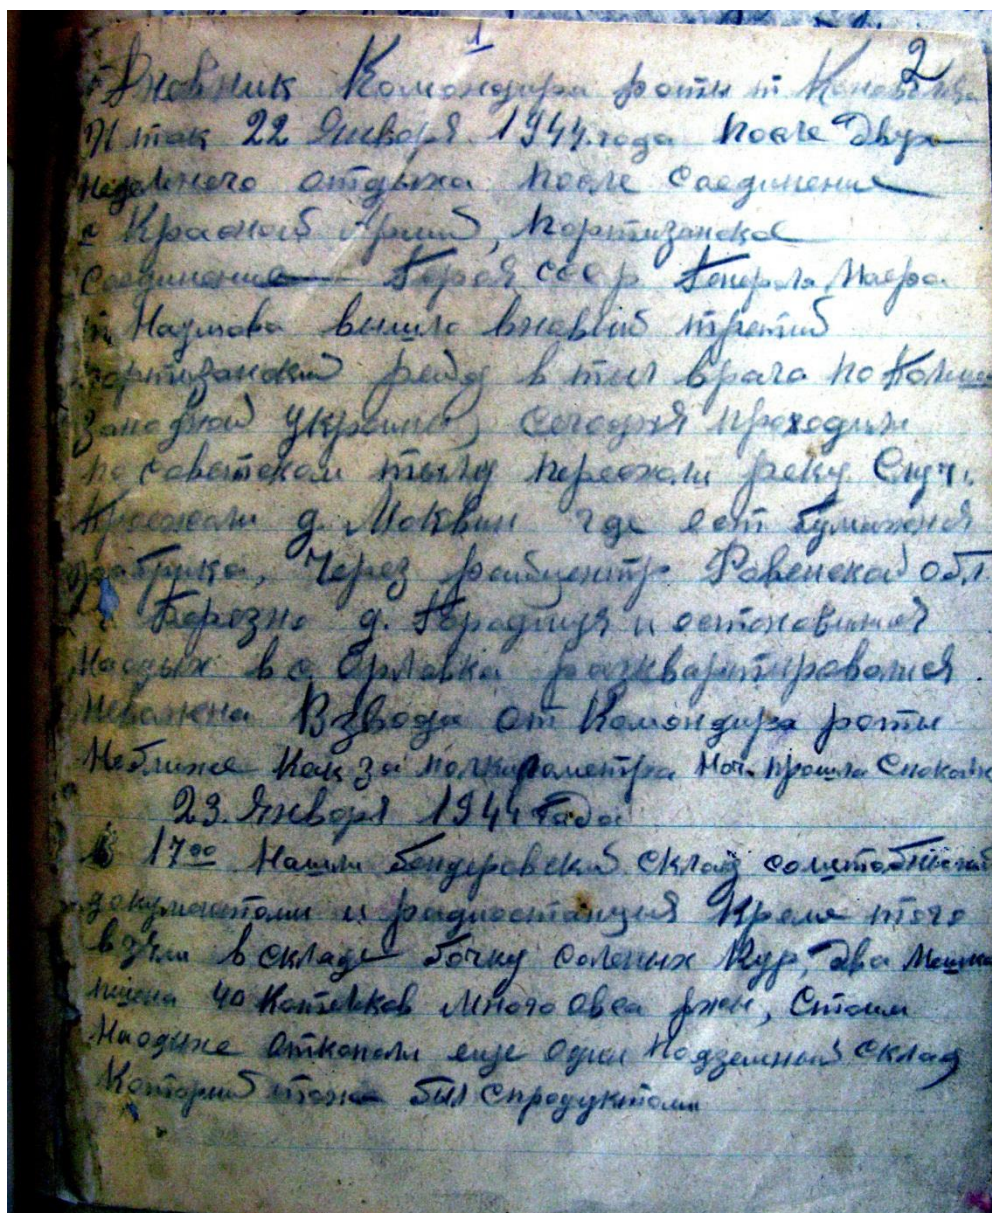 1
2
Дневник Командира роты т
И так 22 Января 1944 года после двух
недельнего отдыха после соединение
с Красной Армий, Портизанска
соединение Героя ссср Генерала Маера
т. Наумова вышло вновый третий
портизанский рейд в тыл врага по
Западной Украины, сегодня проходили
по советскам тылу переехали реку Случ.
Проехали д. Моквин где ест бумажная
фабрика, Через райцентр Равенской обл.
Березно д. Городищя и остоновимся
Наодых в с. Орловка разквартировался
Неважена Взвода от Командира роты
Неближе Как за полкилометра Ноч прошла Спокойн
23. Января 1944 Года
В 17 00 Нашли бендеровский склад соштобнымий
документоми и радиостанция Кроме того
взяли в складе бочку соленых Кур, два Мешка
пшена 40 Котелков Много овса ржи, Стоим
Наодыхе откопали еще один подземный склад
Который тоже был спродуктоми